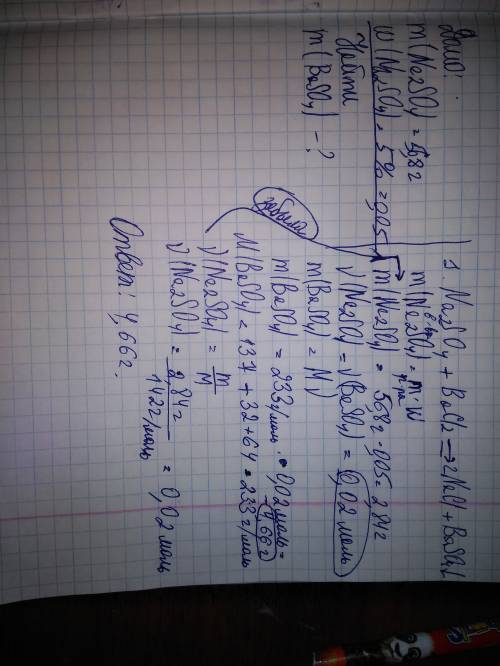 Дано:
m(Na2SO4) = 56,8 г
w(Na2SO4) = 5% = 0,05
Найти
m(BaSO4) - ?
1. Na2SO4 + BaCl2 → 2NaCl + BaSO4↓
m(Na2SO4) = m · w
m(Na2SO4) = 56,8 г · 0,05 = 2,84 г
ν(Na2SO4) = ν(BaSO4) = 0,02 моль
m(BaSO4) = Mν
m(BaSO4) = 233 г/моль · 0,02 моль =
= 4,66 г
забыла
M(BaSO4) = 137 + 32 + 64 = 233 г/моль
ν(Na2SO4) = m/M
ν(Na2SO4) = 2,84 г / 142 г/моль = 0,02 моль
Ответ: 4,66 г.